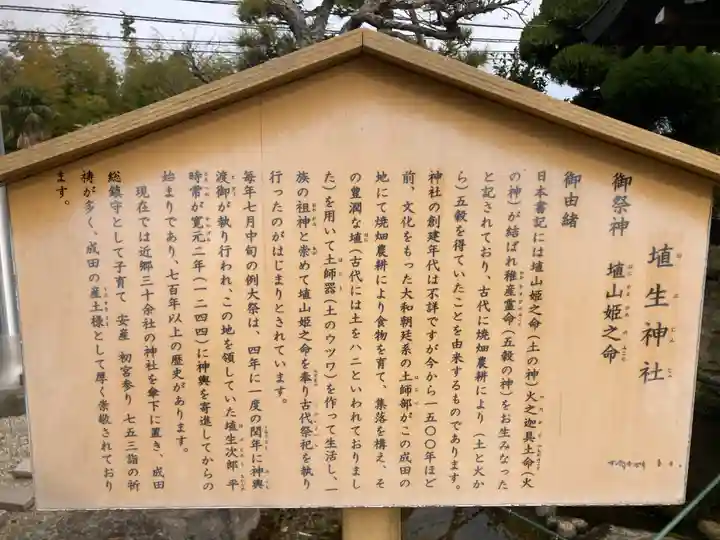 埴生神社
御祭神　埴山姫之命
御由緒
日本書記には埴山姫之命（土の神）火之迦具土命（火
の神）が結ばれ稚産霊命（五穀の神）をお生みなった
と記されており、古代に焼畑農耕により（土と火か
ら）五穀を得ていたことを由来するものであります。
神社の創建年代は不詳ですが今から一五〇〇年ほど
前、文化をもった大和朝廷系の土師部がこの成田の
地にて焼畑農耕により食物を育て、集落を構え、そ
の豊潤な埴（古代には土をハニといわれておりまし
た）を用いて土師器（土のウツワ）を作って生活し、一
族の祖神と崇めて埴山姫之命を奉り古代祭祀を執り
行ったのがはじまりとされています。
毎年七月中旬の例大祭は、四年に一度の閏年に神輿
渡御が執り行われ、この地を領していた埴生次郎 平
時常が寛元二年（一二四四）に神輿を寄進してからの
始まりであり、七百年以上の歴史があります。
現在では近郷三十余社の神社を傘下に置き、成田
総鎮守として子育て　安産　初宮参り　七五三詣の祈
祷が多く、成田の産土様として厚く崇敬されており
ます。